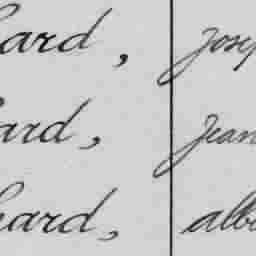 ard, Josep
ard, Jean
hard, albe